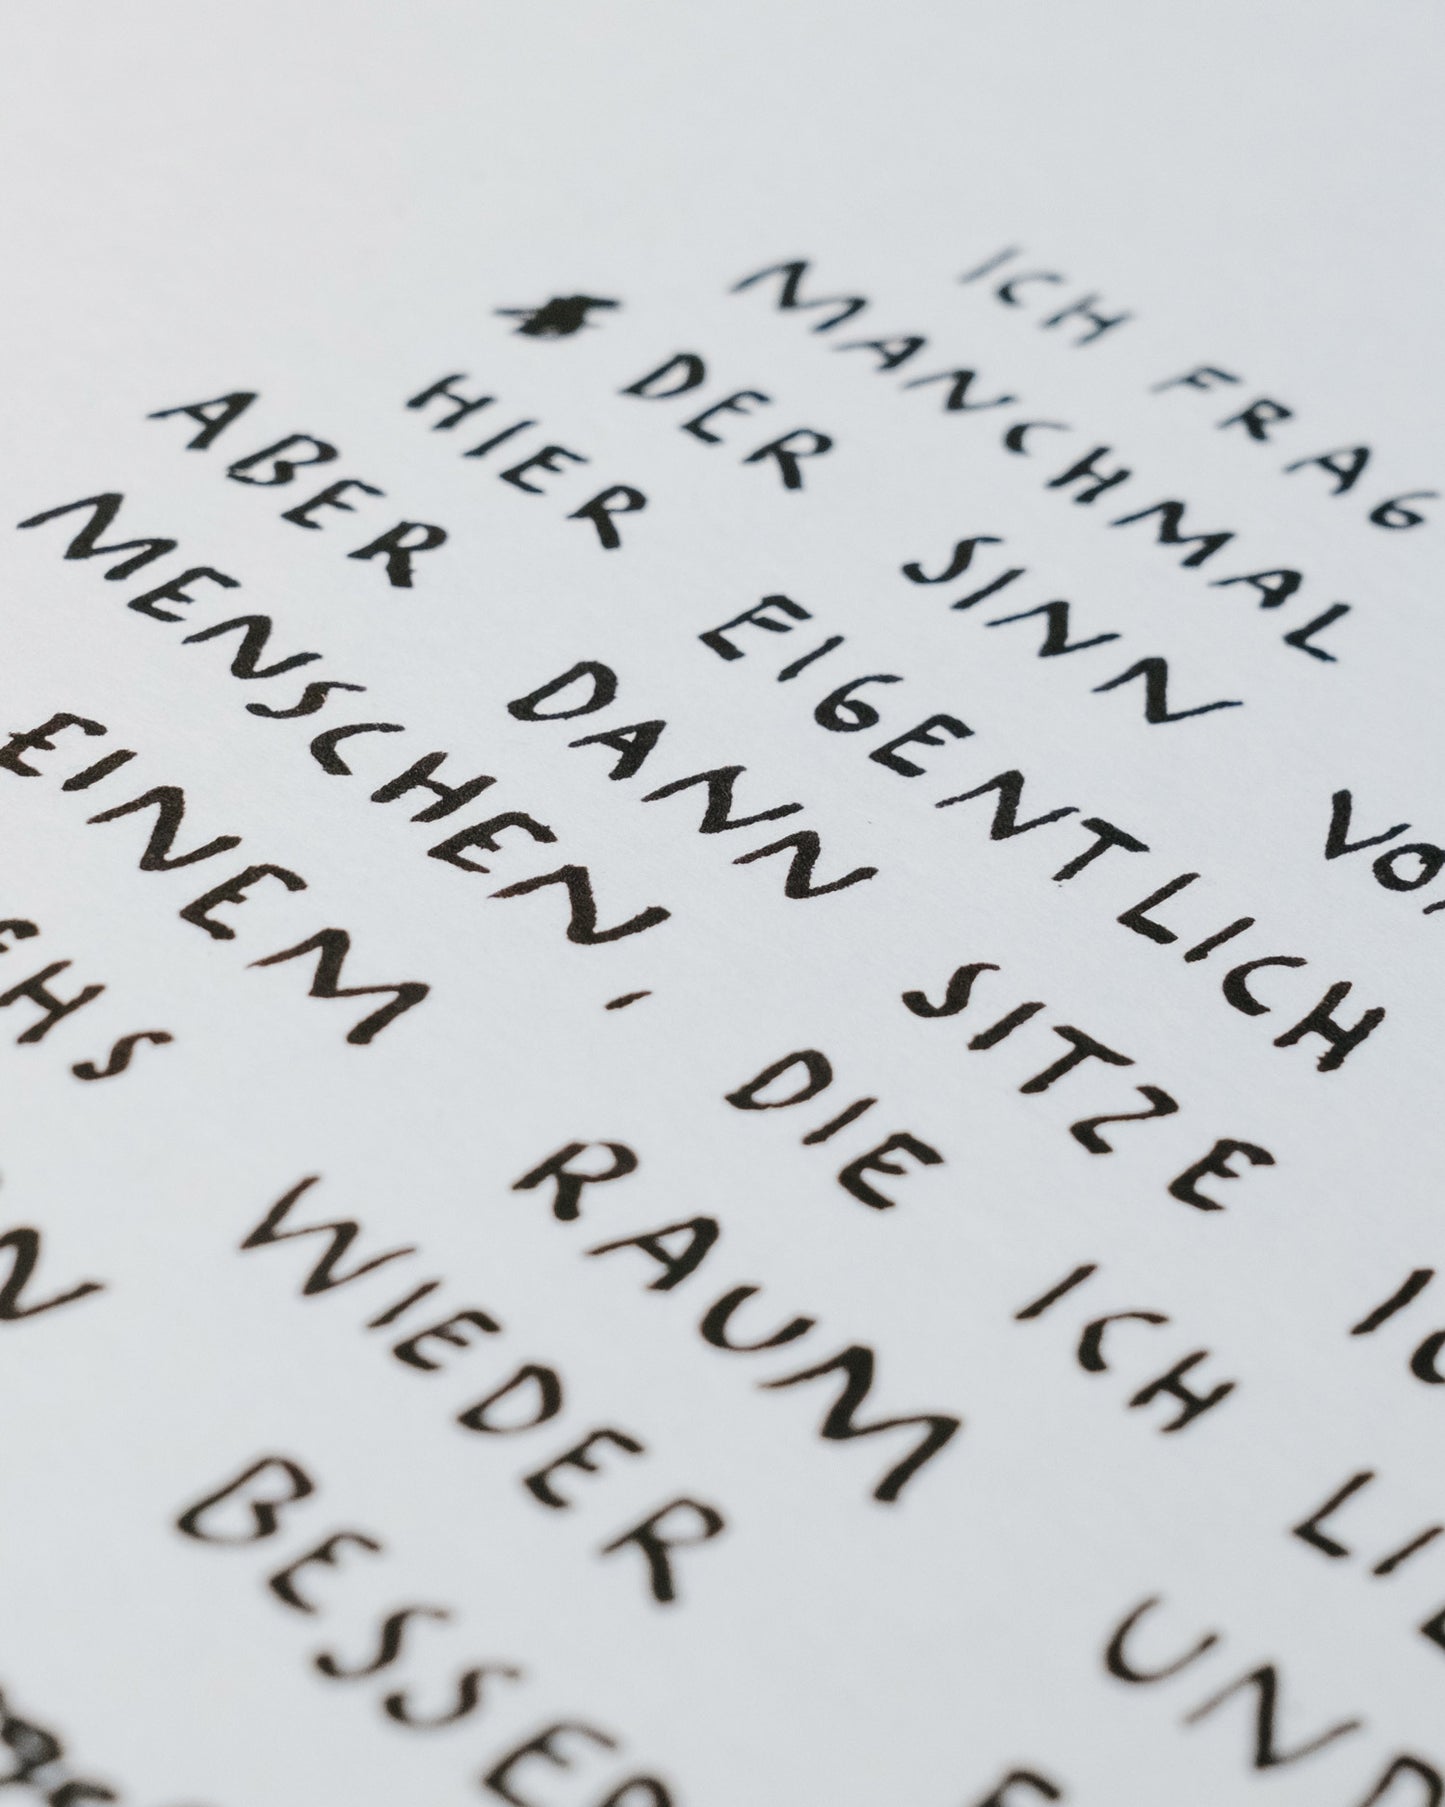 ICH FRAG
MANCHMAL
DER SINN
HIER EIGENTLICH
ABER DANN SITZE
MENSCHEN, DIE ICH
EINEM RAUM UND
WIEDER
BESSER